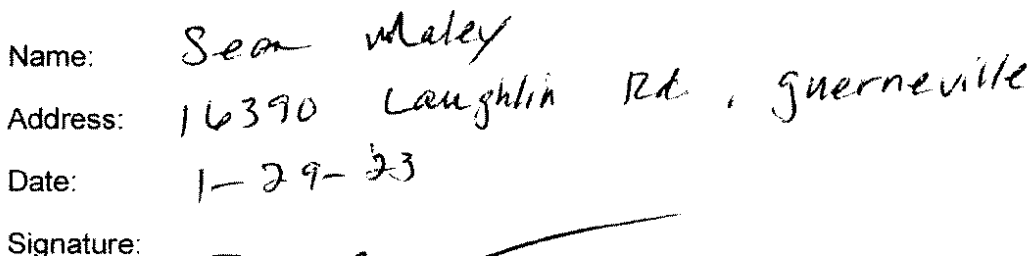 Name: Sean Maley
Address: 16390 Laughlin Rd, guerneville
Date: 1-29-23
Signature: